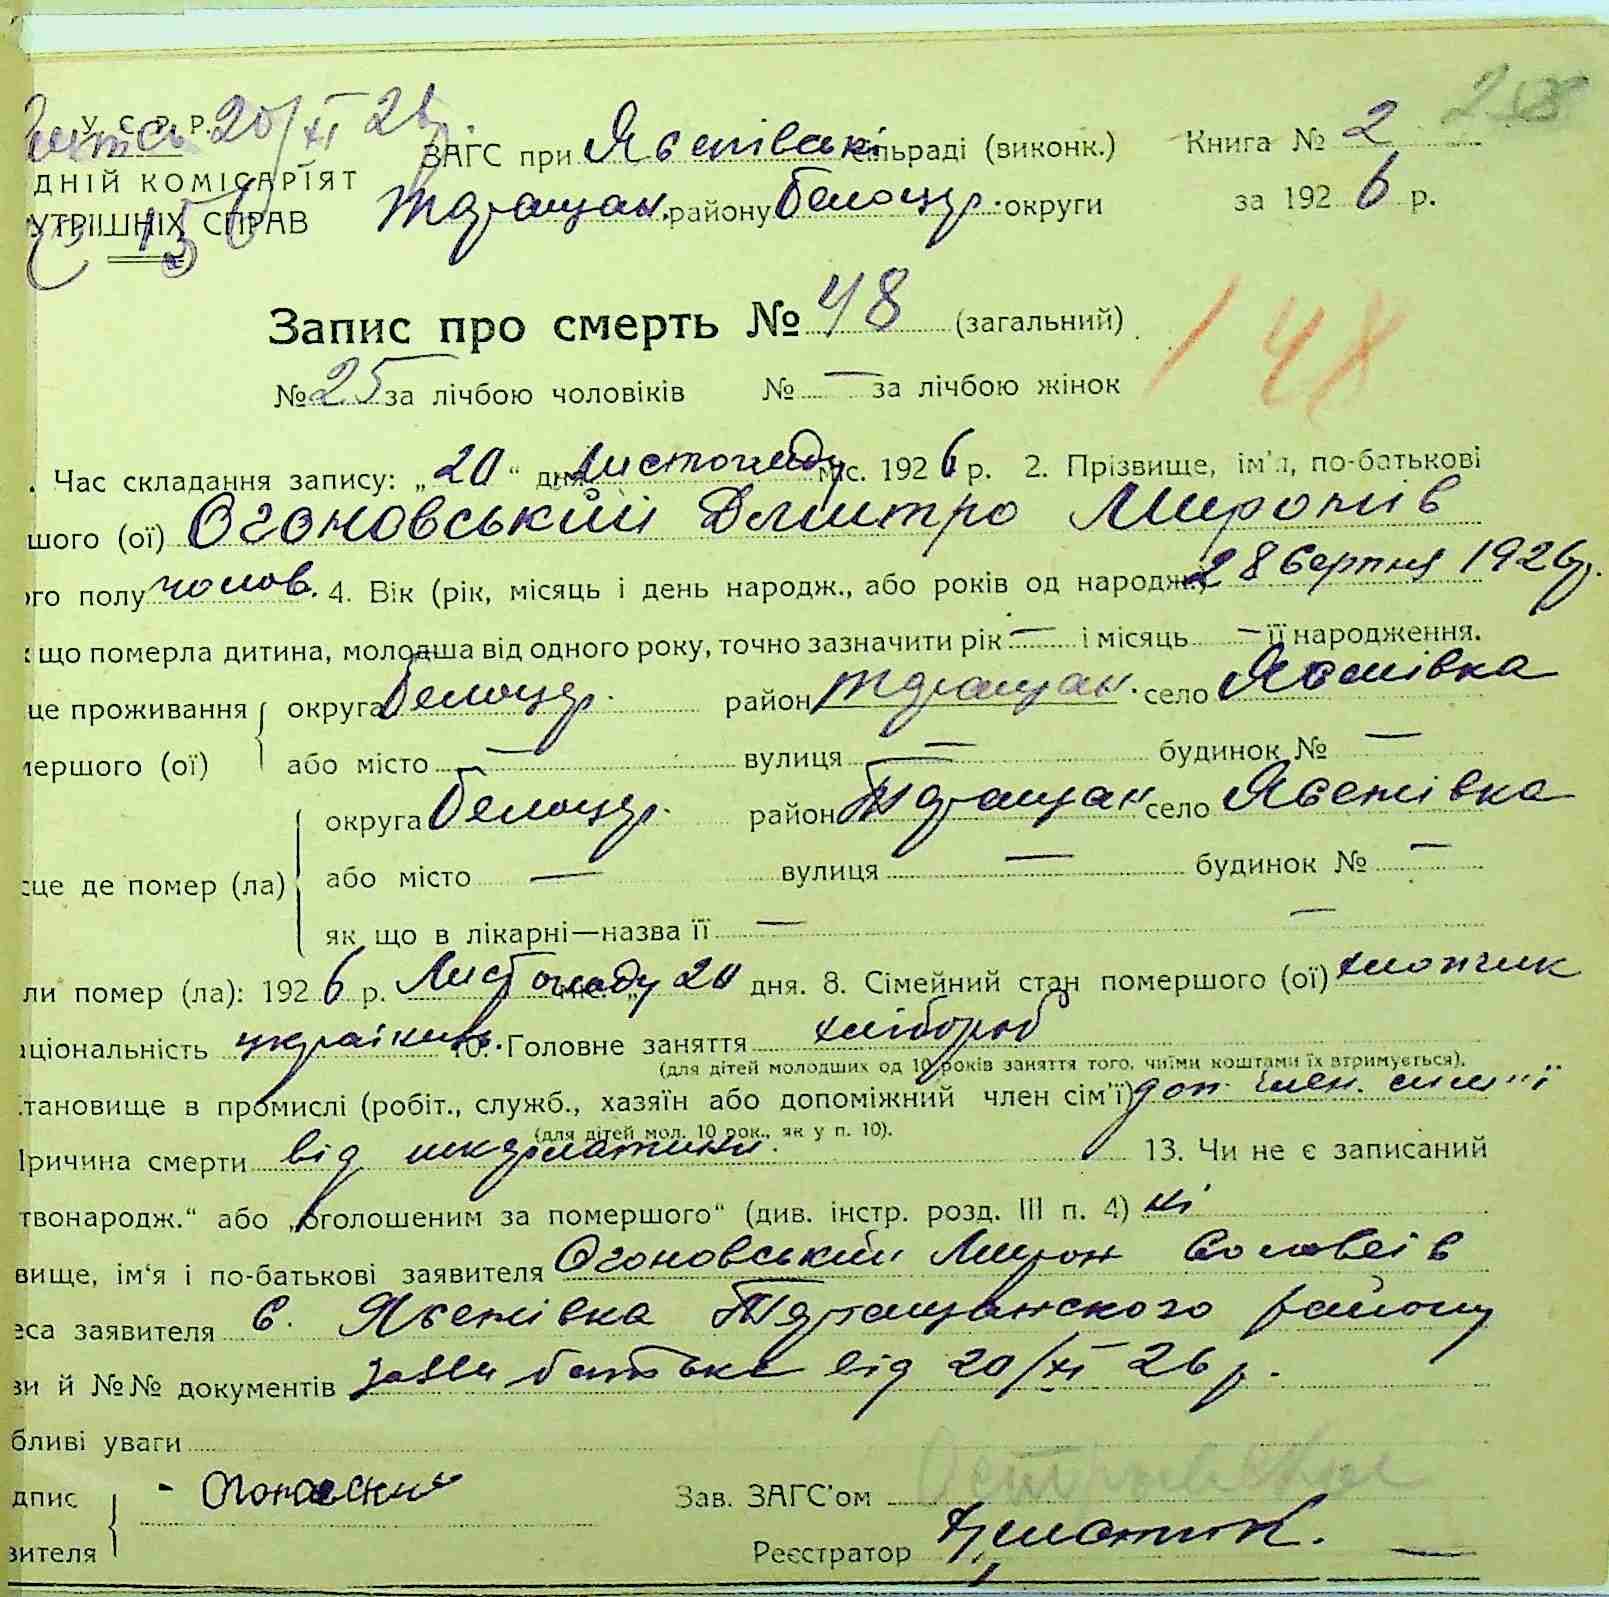 У. С. Р. Р. 20/XI 26
ЗАГС при Яєпівські сільраді (виконк.) Книга № 2
ДНІЙ КОМІСАРІЯТ
УТРІШНІХ СПРАВ
Таращан. району Белоцер. округи за 1926 р.
Запис про смерть № 48 (загальний)
148
№ 25 за лічбою чоловіків № — за лічбою жінок
. Час складання запису: „20“ дня Листопаду міс. 1926 р. 2. Прізвище, ім'я, по-батькові
шого (ої) Огоновський Дмитро Миронів
ого полу чолов. 4. Вік (рік, місяць і день народж., або років од народж.) 28 Серпня 1926 р.
що померла дитина, молодша від одного року, точно зазначити рік — і місяць — її народження.
це проживання округа Белоцер. район Таращан. село
мершого (ої) або місто — вулиця — будинок № —
округа Белоцер. район Таращан село
сце де помер (ла) або місто — вулиця — будинок № —
як що в лікарні—назва її — —
ли помер (ла): 1926 р. Листопаду міс. „20 дня. 8. Сімейний стан помершого (ої) хлопчик
аціональність українець. 10. Головне заняття хлібороб
(для дітей молодших од 10 років заняття того, чиїми коштами їх втримується).
тановище в промислі (робіт., служб., хазяїн або допоміжний член сім'ї) доп. член. сим'ї
(для дітей мол. 10 рок., як у п. 10).
Причина смерти від шкарлатини. 13. Чи не є записаний
твонародж.“ або „оголошеним за помершого“ (див. інстр. розд. III п. 4) ні
вище, ім'я і по-батькові заявителя Огоновський Мирон
еса заявителя с. Таращанского району
зи й №№ документів заяви батька від 20/XI 26 р.
бливі уваги
дпис - Огоновский Зав. ЗАГС'ом
вителя Реєстратор